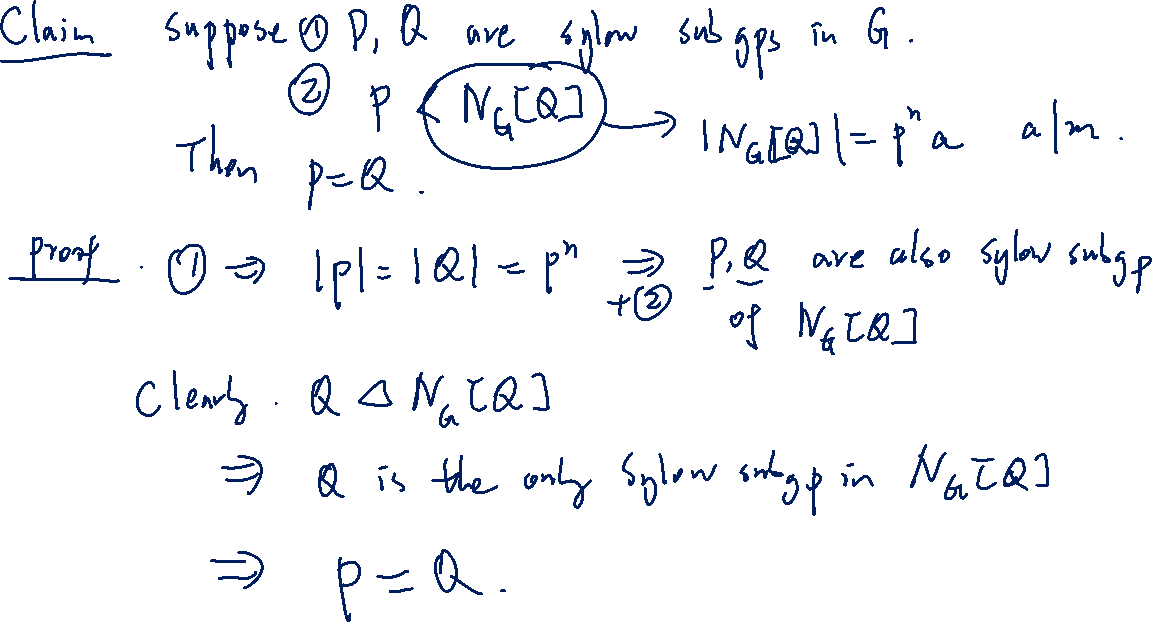 Claim suppose ① P, Q are sylow subgps in G.
② P < N_G[Q] → |N_G[Q]| = pⁿa a|m.
Then P=Q.
proof. ① ⇒ |P| = |Q| = pⁿ ⇒ +② P, Q are also sylow subgp
of N_G[Q]
Clearly. Q ⊲ N_G[Q]
⇒ Q is the only Sylow subgp in N_G[Q]
⇒ P = Q.